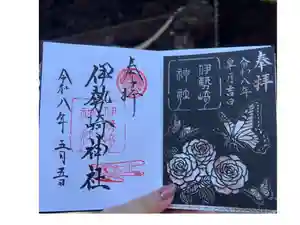 奉拝
伊勢崎神社
令和八年 五月五日
奉拝
令和八年
皐月吉日
伊勢崎
神社